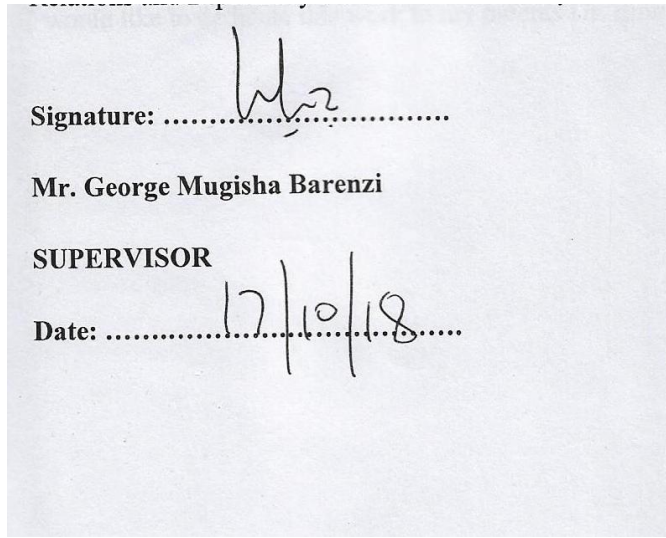 Signature: ..........................................
Mr. George Mugisha Barenzi
SUPERVISOR
Date: ....17/10/18....